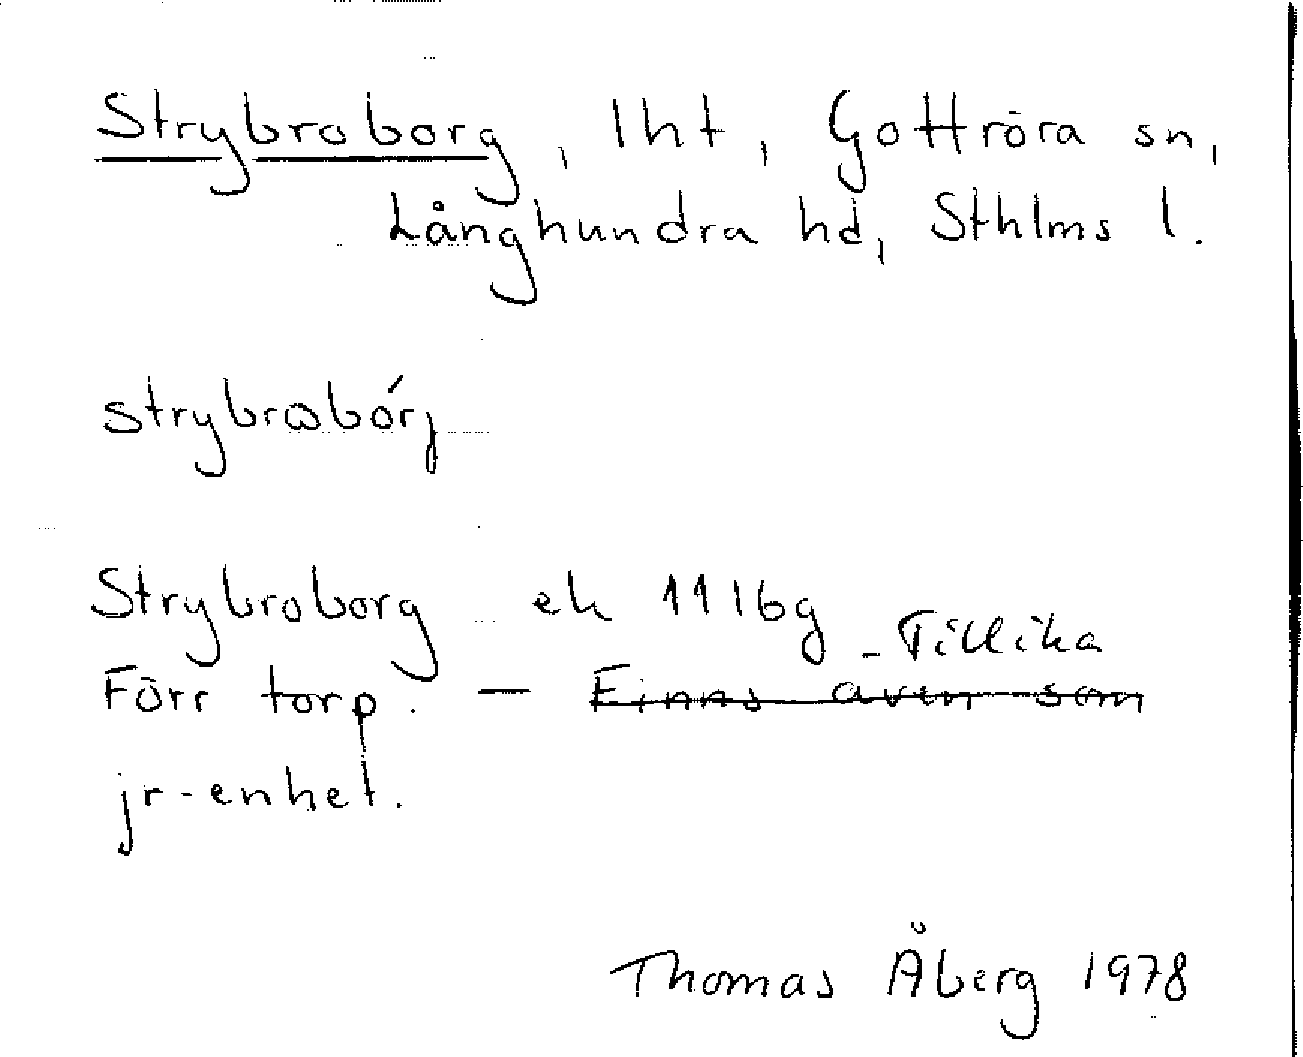 Strybroborg, lht, Gottröra sn,
Långhundra hd, Sthlms l.
strybrωbórj
Strybroborg ek 11 I 6g
- Tillika
Förr torp. — Finns även som
jr-enhet.
Thomas Åberg 1978